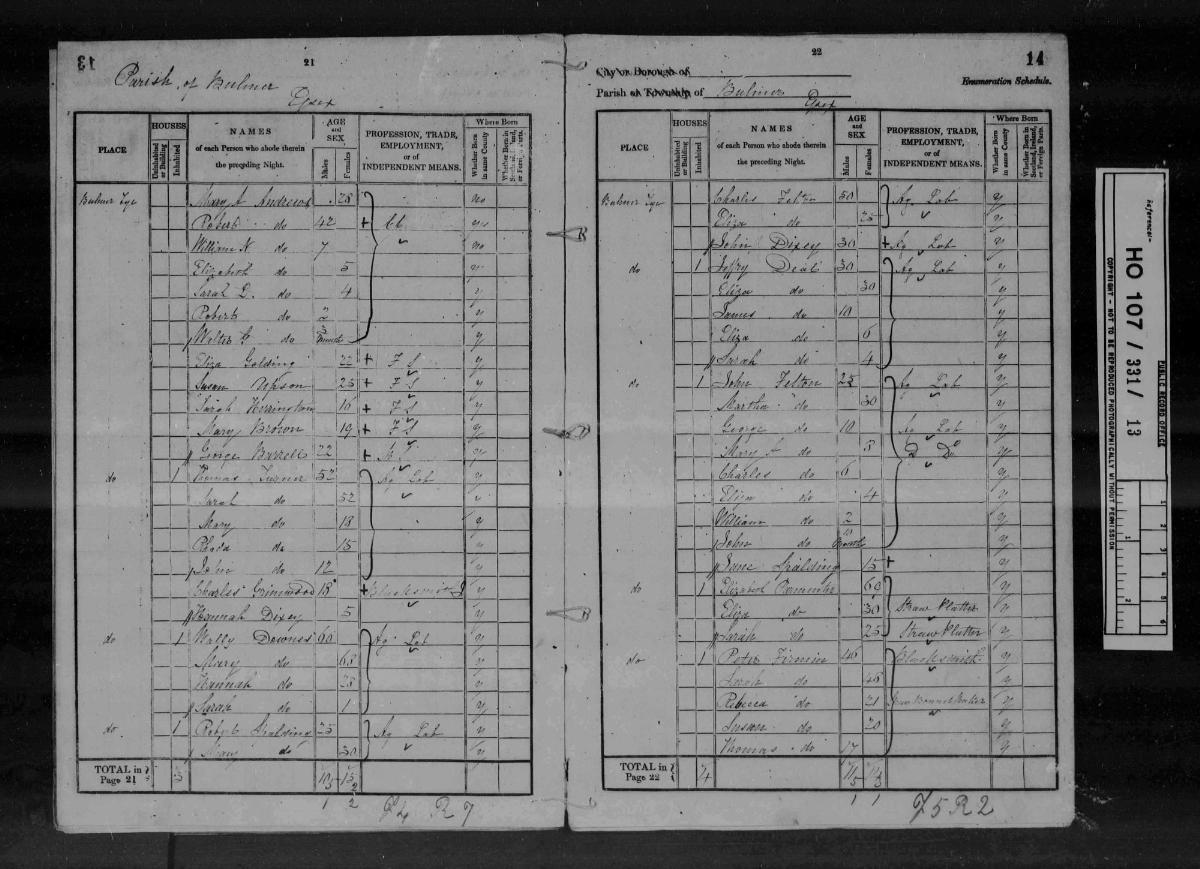 13
21
Parish of Bulmer
Essex
PLACE
HOUSES
Uninhabited or Building
Inhabited
NAMES
of each Person who abode therein
the preceding Night.
AGE
and
SEX
Males
Females
PROFESSION, TRADE,
EMPLOYMENT,
or of
INDEPENDENT MEANS.
Where Born
Whether Born in same County
Whether Born in Scotland, Ireland, or Foreign Parts.
Bulmer Tye Mary A Andrews 28 no
Robert do 42
William N do 7 no
Elizabeth do 5 y
Sarah do 4 y
Robert do 2 y
Walter G do 3 Months y
Eliza Golding 22 + F S y
Susan 25 + F S y
Sarah Herrington 16 + F S y
Mary Brown 19 + F S y
George Burrell 22 + M S y
do 1 Thomas Turner 52 Ag Lab y
Sarah do 52
Mary do 18 y
Rhoda do 15 y
John do 12 y
Charles Grimwood 18 + Blacksmith J y
Hannah Dixey 5 y
do 1 Wally Downes 60 Ag Lab y
Mary do 63 y
Hannah do 28 y
Sarah do 1 y
do 1 Robert Spalding 25 Ag Lab y
Mary do 30 y
TOTAL in Page 21 3 10 15
1 2
F4 R7
22
14
City or Borough of
Enumeration Schedule.
Parish or Township of Bulmer
Essex
PLACE
HOUSES
Uninhabited or Building
Inhabited
NAMES
of each Person who abode therein
the preceding Night.
AGE
and
SEX
Males
Females
PROFESSION, TRADE,
EMPLOYMENT,
or of
INDEPENDENT MEANS.
Where Born
Whether Born in same County
Whether Born in Scotland, Ireland, or Foreign Parts.
Bulmer Tye Charles Felton 50 Ag Lab y
Eliza do 25 y
John Dixey 30 + Ag Lab y
do 1 Jeffry Deal 30 Ag Lab y
Eliza do 30 y
James do 10 y
Eliza do 6 y
Sarah do 4 y
do 1 John Felton 25 Ag Lab y
Martha do 30 y
George do 10 Ag Lab y
Mary A do 8 Do y
Charles do 6 y
Eliza do 4 y
William do 2 y
John do Months y
Jane Spalding 15 + y
do 1 Elizabeth 60 y
Eliza do 30 Straw Platter y
Sarah do 25 Straw Platter y
do 1 Peter Firmin 46 Blacksmith y
Sarah do 46 y
Rebecca do 21 Straw Bonnet Maker y
Susan do 20 y
Thomas do 17 y
TOTAL in Page 22 4
1 1
F5 R2
Reference:-
HO 107 / 331 / 13
PUBLIC RECORD OFFICE
COPYRIGHT - NOT TO BE REPRODUCED PHOTOGRAPHICALLY WITHOUT PERMISSION
1 2 3 4 5 6
1 2